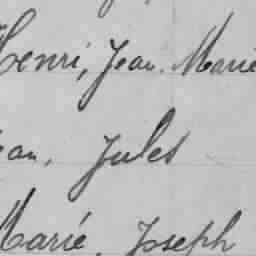 Henri, Jean. Marie
ean, Jules
Marie, Joseph